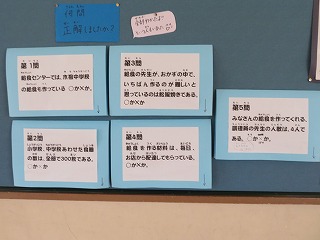 何問
正解しましたか？
第1問
給食センターでは、市南中学校
の給食も作っている ○か×か。
第2問
小学校、中学校あわせた食器
の数は、全部で300枚である。
○か×か
第3問
給食の先生が、おかずの中で、
いちばん作るのが難しいと
思っているのは鮭塩焼きである。
○か×か。
第4問
給食を作る材料は、毎日、
お店から配達してもらっている。
○か×か
第5問
みなさんの給食を作ってくれる、
調理員の先生の人数は、4人で
ある。○か×か。